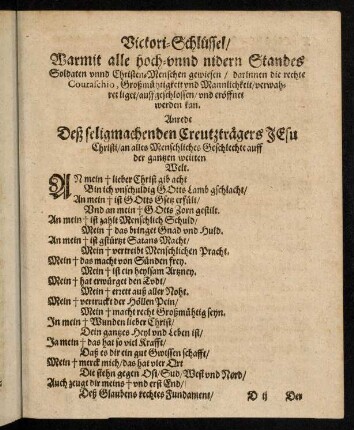 Victori-Schlüssel/
Warmit alle hoch-vnnd nidern Standes
Soldaten vnnd Christen-Menschen gewiesen / darinnen die rechte
Couraschio, Großmühtigkeit vnd Mannlichkeit / verwah-
ret liget / auffgeschlossen / vnd eröffnet
werden kan.
Anrede
Deß seligmachenden Creutzträgers JEsu
Christi / an alles Menschliches Geschlechte auff
der gantzen weitten
Welt.
AN mein † lieber Christ gib acht
Bin ich vnschuldig GOtts Lamb gschlacht /
An mein † ist GOtts Gsetz erfült /
Vnd an mein † GOtts Zorn gestilt.
An mein † ist zahlt Menschlich Schuld /
Mein † das bringet Gnad vnd Huld.
An mein † ist gstürtzt Satans Macht /
Mein † vertreibt Menschlichen Pracht.
Mein † das macht von Sünden frey,
Mein † ist ein heylsam Artzney.
Mein † hat erwürget den Todt /
Mein † errett auß aller Noht.
Mein † vertruckt der Höllen Pein /
Mein † macht recht Großmühtig seyn.
In mein † Wunden lieber Christ /
Dein gantzes Heyl vnd Leben ist /
Ja mein † das hat so viel Krafft /
Daß es dir ein gut Gwissen schafft /
Mein † merck mich / das hat vier Ort
Die stehn gegen Ost / Sud West vnd Nord /
Auch zeugt dir meins † vnd erst End /
Deß Glaubens rechtes Fundament /
D ij Der